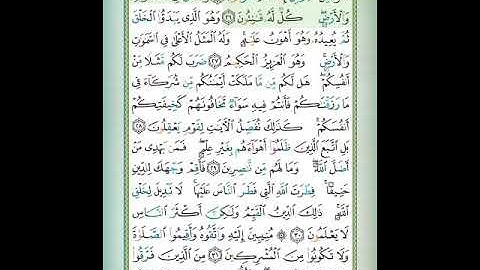 وَالْأَرْضِ ۖ كُلٌّ لَّهُ قَانِتُونَ ﴿٢٦﴾ وَهُوَ الَّذِي يَبْدَؤُا الْخَلْقَ
ثُمَّ يُعِيدُهُ وَهُوَ أَهْوَنُ عَلَيْهِ ۚ وَلَهُ الْمَثَلُ الْأَعْلَىٰ فِي السَّمَاوَاتِ
وَالْأَرْضِ ۚ وَهُوَ الْعَزِيزُ الْحَكِيمُ ﴿٢٧﴾ ضَرَبَ لَكُم مَّثَلًا مِّنْ
أَنفُسِكُمْ ۖ هَل لَّكُم مِّن مَّا مَلَكَتْ أَيْمَانُكُم مِّن شُرَكَاءَ فِي
مَا رَزَقْنَاكُمْ فَأَنتُمْ فِيهِ سَوَاءٌ تَخَافُونَهُمْ كَخِيفَتِكُمْ
أَنفُسَكُمْ ۚ كَذَٰلِكَ نُفَصِّلُ الْآيَاتِ لِقَوْمٍ يَعْقِلُونَ ﴿٢٨﴾
بَلِ اتَّبَعَ الَّذِينَ ظَلَمُوا أَهْوَاءَهُم بِغَيْرِ عِلْمٍ ۖ فَمَن يَهْدِي مَنْ
أَضَلَّ اللَّهُ ۖ وَمَا لَهُم مِّن نَّاصِرِينَ ﴿٢٩﴾ فَأَقِمْ وَجْهَكَ لِلدِّينِ
حَنِيفًا ۚ فِطْرَتَ اللَّهِ الَّتِي فَطَرَ النَّاسَ عَلَيْهَا ۚ لَا تَبْدِيلَ لِخَلْقِ
اللَّهِ ۚ ذَٰلِكَ الدِّينُ الْقَيِّمُ وَلَٰكِنَّ أَكْثَرَ النَّاسِ
لَا يَعْلَمُونَ ﴿٣٠﴾ ۞ مُنِيبِينَ إِلَيْهِ وَاتَّقُوهُ وَأَقِيمُوا الصَّلَاةَ
وَلَا تَكُونُوا مِنَ الْمُشْرِكِينَ ﴿٣١﴾ مِنَ الَّذِينَ فَرَّقُوا